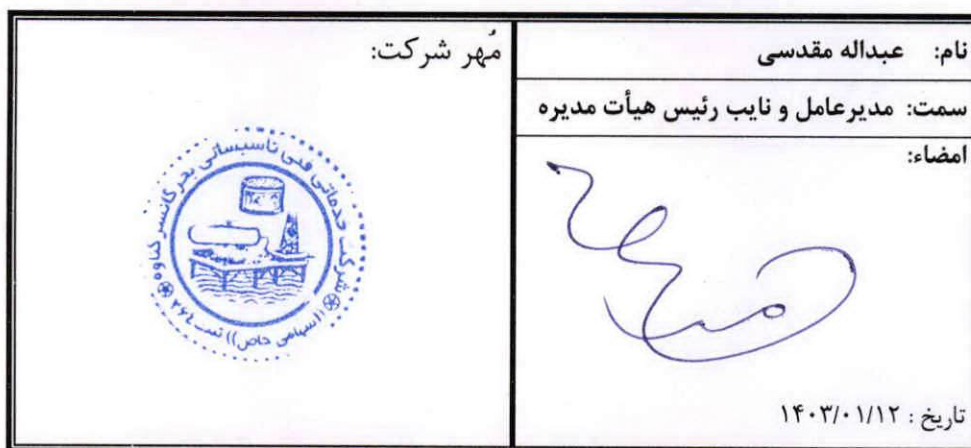 نام: عبداله مقدسی
سمت: مدیرعامل و نایب رئیس هیأت مدیره
امضاء:
تاریخ : ۱۴۰۳/۰۱/۱۲
مُهر شرکت:
شرکت خدماتی فنی تاسیساتی بحرگانسر گناوه
((سهامی خاص)) ثبت ۲۶۴